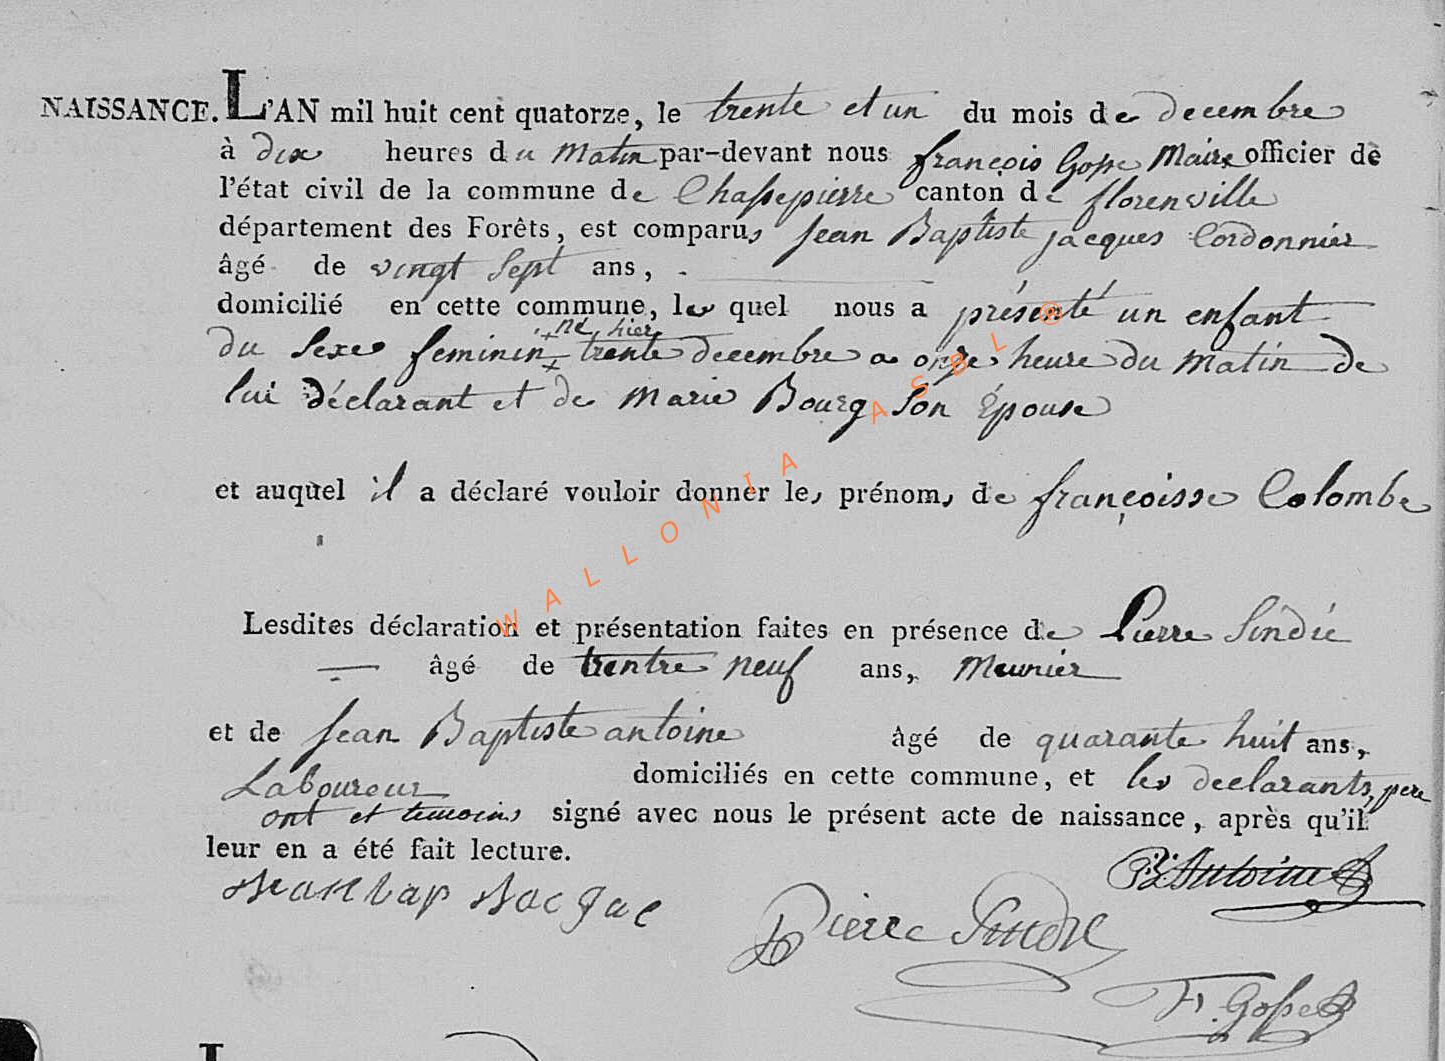 NAISSANCE. L'AN mil huit cent quatorze, le trente et un du mois de decembre
à dix heures du Matin par-devant nous françois Gosse Maire officier de
l'état civil de la commune de Chassepierre canton de florenville
département des Forêts, est comparus Jean Baptiste jacques Cordonnier
âgé de vingt Sept ans,
domicilié en cette commune, lequel nous a présenté un enfant
né hier
du Sexe feminin trente decembre a onze heure du Matin de
lui déclarant et de Marie Bourg Son Épouse
et auquel il a déclaré vouloir donner les prénoms de françoisse Colombe
Lesdites déclaration et présentation faites en présence de Pierre Sindic
âgé de trentre neuf ans, Meunier
et de Jean Baptiste antoine âgé de quarante huit ans,
Laboureur domiciliés en cette commune, et les declarants, pere
ont et temoins signé avec nous le présent acte de naissance, après qu'il
leur en a été fait lecture.
JB Antoine
Jean bap Jacque
Pierre
F. Gosse
WALLONIA ASBL ®